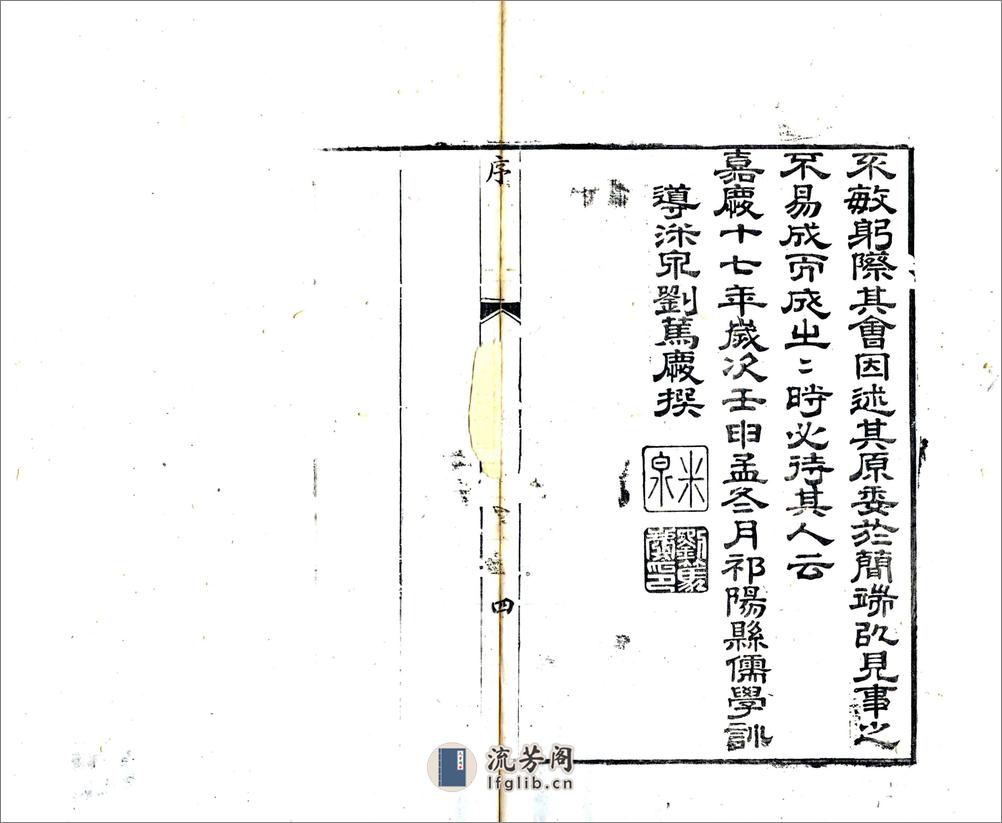 不敏躬際其會因述其原委於簡端以見事之
不易成而成之〻時必待其人云
嘉慶十七年歲次壬申孟冬月祁陽縣儒學訓
導深泉劉萬慶撰
米泉
序
四
流芳阁
lfglib.cn